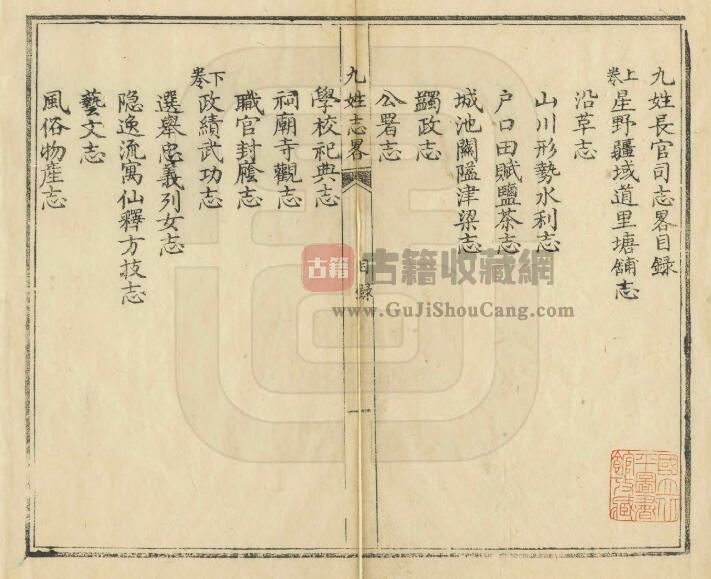 九姓長官司志畧目録
卷上 星野疆域道里塘舖志
沿革志
山川形勢水利志
户口田賦鹽茶志
城池關隘津梁志
蠲政志
公署志
九姓志畧 目録 一
學校祀典志
祠廟寺觀志
職官封廕志
卷下 政績武功志
選舉忠義列女志
隐逸流寓仙釋方技志
藝文志
風俗物產志
國立北
平圖書
館收藏
古籍 古籍收藏網
www.GuJiShouCang.com